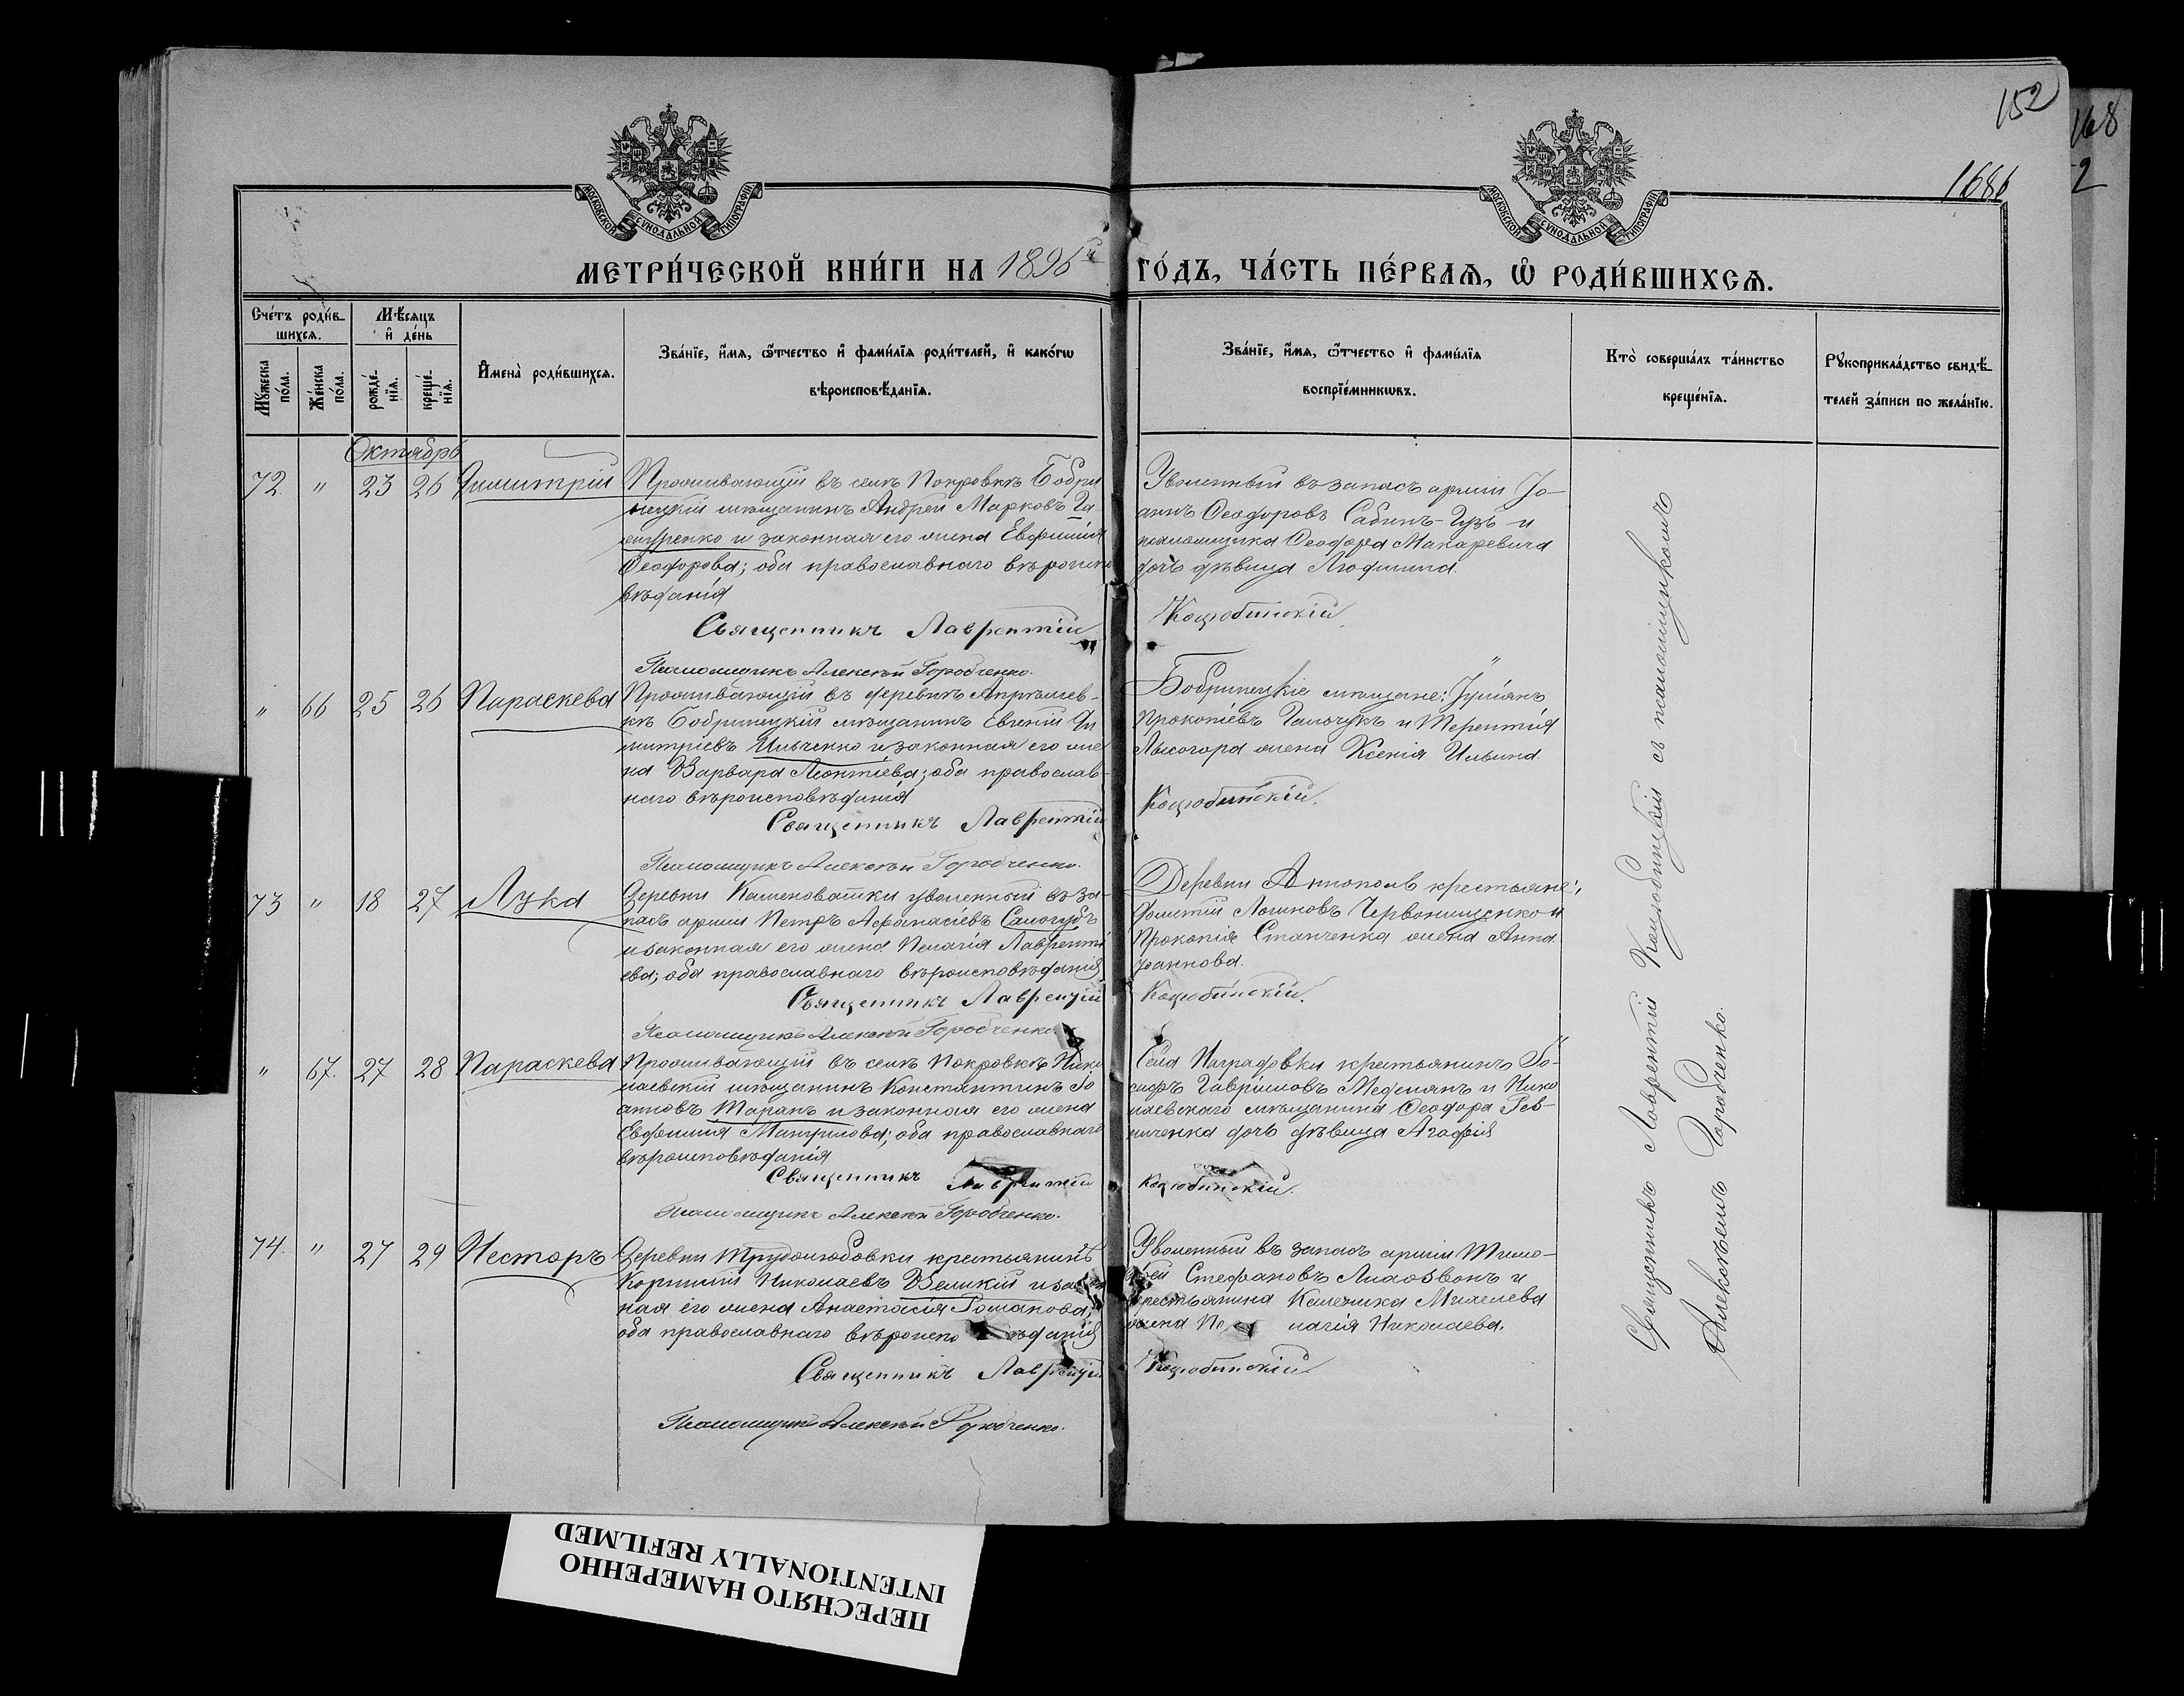 152
168
2
168б
МОСКОВСКОЙ СѴНОДАЛЬНОЙ ТИПОГРАФІИ
МОСКОВСКОЙ СѴНОДАЛЬНОЙ ТИПОГРАФІИ
МЕТРИ́ЧЕСКОЙ КНИ́ГИ НА 1896й ГО́ДЪ, ЧА́СТЬ ПЕ́РВАѦ, Ѽ РОДИ́ВШИХСѦ.
Сче́тъ роди́вшихсѧ.
Мꙋ́жеска по́ла.
Же́нска по́ла.
Мѣ́сѧцъ и҆ де́нь
рожде́нїѧ.
креще́нїѧ.
И҆мена̀ роди́вшихсѧ.
Зва́нїе, и҆́мѧ, ѻ҆́тчество и҆ фами́лїѧ роди́телей, и҆ како́гѡ
вѣроисповѣ́данїѧ.
Зва́нїе, и҆́мѧ, ѻ҆́тчество и҆ фами́лїѧ
воспрїе́мникѡвъ.
Кто̀ соверша́лъ та́инство
креще́нїѧ.
Рꙋкоприкла́дство свидѣ́-
телей за́писи по жела́нїю.
Октябрь
72. " 23 26 Димитрій
Проживающій въ селѣ Покровкѣ Бобри
нецкій мѣщанинъ Андрей Марковъ
и законная его жена Евфимія
Ѳеодорова; оба православнаго вѣроиспо
вѣданія
Священникъ Лаврентій
Псаломщикъ Алексѣй Городченко.
Уволенный въ запасъ арміи Іо-
аннъ Ѳеодоровъ и
псаломщика Ѳеодора Макаревича
дочь дѣвица
Коцюбинскій
" 66 25 26 Параскева
Проживающій въ деревнѣ
кѣ Бобринецкій мѣщанинъ Евгеній Ди
митріевъ Ильченко и законная его же
на Варвара Леонтіева; оба православ-
наго вѣроисповѣданія
Священникъ Лаврентій
Псаломщикъ Алексѣй Городченко.
Бобринецкіе мѣщане: Іуліанъ
Прокопіевъ и Терентія
Лысогора жена Ксенія Ильина.
Коцюбинскій.
73 " 18 27 Лука
Деревни Каменоватки уволенный въ за-
пасъ арміи Петръ Аѳанасіевъ Самогубъ
и законная его жена Пелагія Лавренті
ева; оба православнаго вѣроисповѣданія
Священникъ Лаврентій
Псаломщикъ Алексѣй Городченко.
Деревни Аннополь крестьяне:
Логиновъ и
Прокопія Станченка жена Анна
Іоаннова.
Коцюбинскій.
" 67. 27 28 Параскева
Проживающій въ селѣ Покровкѣ Нико
лаевскій мѣщанинъ Константинъ Іо
анновъ Таранъ и законная его жена
Евфимія; оба православнаго
вѣроисповѣданія
Священникъ Лаврентій
Псаломщикъ Алексѣй Городченко.
Села крестьянинъ Іо-
сифъ Гавріиловъ и Нико
лаевскаго мѣщанина Ѳеодора Рев-
ниченка дочь дѣвица Агафія
Коцюбинскій.
74. " 27 29 Несторъ
Деревни Трудолюбовки крестьянинъ
Николаевъ Великій и закон
ная его жена Анастасія Романова;
оба православнаго вѣроиспо вѣданія
Священникъ Лаврентій
Псаломщикъ Алексѣй Городченко.
Уволенный въ запасъ арміи Тимо-
ѳей Стефановъ и
крестьянина Каленика Михелева
жена Пе лагія Николаева.
Коцюбинскій
Священникъ Лаврентій Коцюбинскій съ псаломщикомъ
Алексѣемъ Городченко.
ПЕРЕСНЯТО НАМЕРЕННО
INTENTIONALLY REFILMED